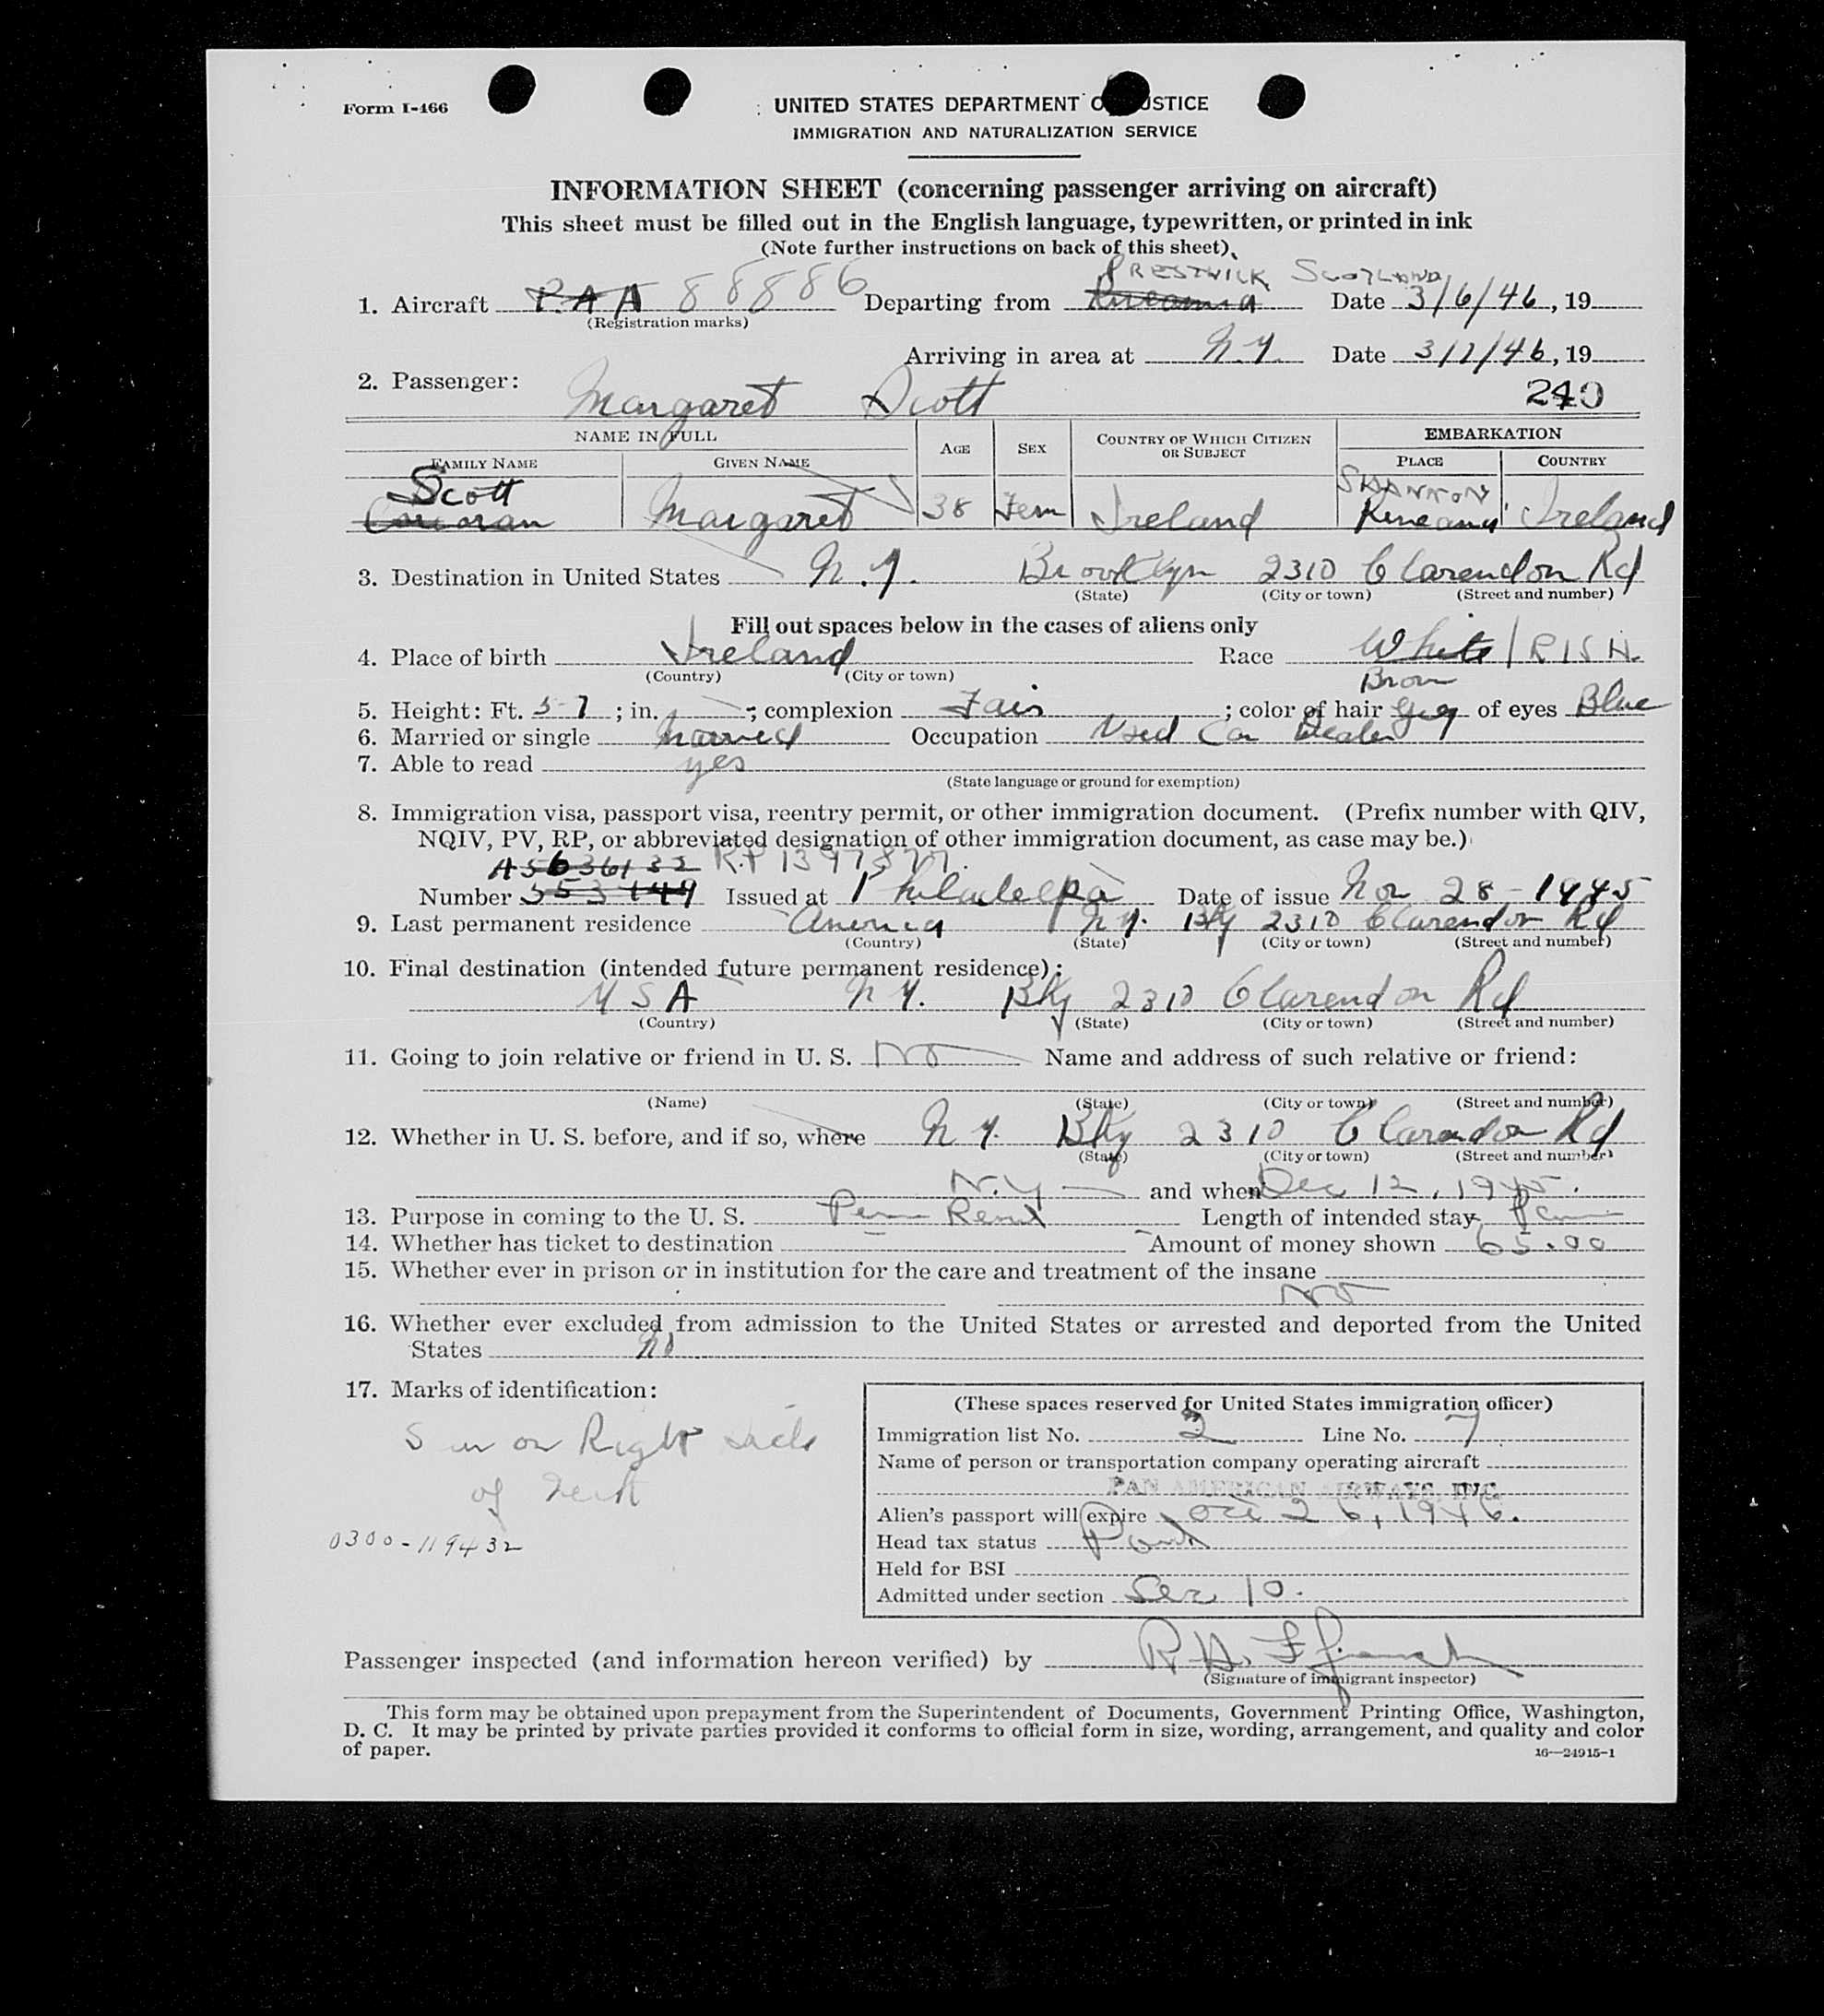 Form I-466
UNITED STATES DEPARTMENT OF JUSTICE
IMMIGRATION AND NATURALIZATION SERVICE
INFORMATION SHEET (concerning passenger arriving on aircraft)
This sheet must be filled out in the English language, typewritten, or printed in ink
(Note further instructions on back of this sheet)
PRESTWICK SCOTLAND
1. Aircraft P.A A 88886 Departing from Rineanna Date 3/6/46, 19
(Registration marks)
Arriving in area at N.Y. Date 3/7/46, 19
2. Passenger: Margaret Scott 240
NAME IN FULL AGE SEX COUNTRY OF WHICH CITIZEN OR SUBJECT EMBARKATION
FAMILY NAME GIVEN NAME PLACE COUNTRY
Scott SHANNON
Corcoran Margaret 38 Fem Ireland Rineanna Ireland
3. Destination in United States N.Y. Brooklyn 2310 Clarendon Rd
(State) (City or town) (Street and number)
Fill out spaces below in the cases of aliens only
4. Place of birth Ireland Race White IRISH
(Country) (City or town)
Brow
5. Height: Ft. 5-7; in. ; complexion Fair; color of hair Grey of eyes Blue
6. Married or single Married Occupation Used Car Dealer
7. Able to read yes
(State language or ground for exemption)
8. Immigration visa, passport visa, reentry permit, or other immigration document. (Prefix number with QIV,
NQIV, PV, RP, or abbreviated designation of other immigration document, as case may be.)
A5636132 R.P 1397877.
Number 553149 Issued at Philadelpa Date of issue Nov 28-1945
9. Last permanent residence America N.Y. Bky 2310 Clarendon Rd
(Country) (State) (City or town) (Street and number)
10. Final destination (intended future permanent residence):
USA N.Y. Bky 2310 Clarendon Rd
(Country) (State) (City or town) (Street and number)
11. Going to join relative or friend in U. S. NO Name and address of such relative or friend:
(Name) (State) (City or town) (Street and number)
12. Whether in U. S. before, and if so, where N.Y. Bky 2310 Clarendon Rd
(State) (City or town) (Street and number)
N.Y and when Dec 12, 1945.
13. Purpose in coming to the U. S. Perm Resid Length of intended stay Perm
14. Whether has ticket to destination Amount of money shown 65.00
15. Whether ever in prison or in institution for the care and treatment of the insane
NO
16. Whether ever excluded from admission to the United States or arrested and deported from the United
States No
17. Marks of identification:
on Right side
of
0300-119432
(These spaces reserved for United States immigration officer)
Immigration list No. 2 Line No. 7
Name of person or transportation company operating aircraft
PAN AMERICAN AIRWAYS, INC.
Alien's passport will expire Oct 26, 1946.
Head tax status
Held for BSI
Admitted under section Sec 10.
Passenger inspected (and information hereon verified) by R. H.
(Signature of immigrant inspector)
This form may be obtained upon prepayment from the Superintendent of Documents, Government Printing Office, Washington,
D. C. It may be printed by private parties provided it conforms to official form in size, wording, arrangement, and quality and color
of paper.
16—24915-1